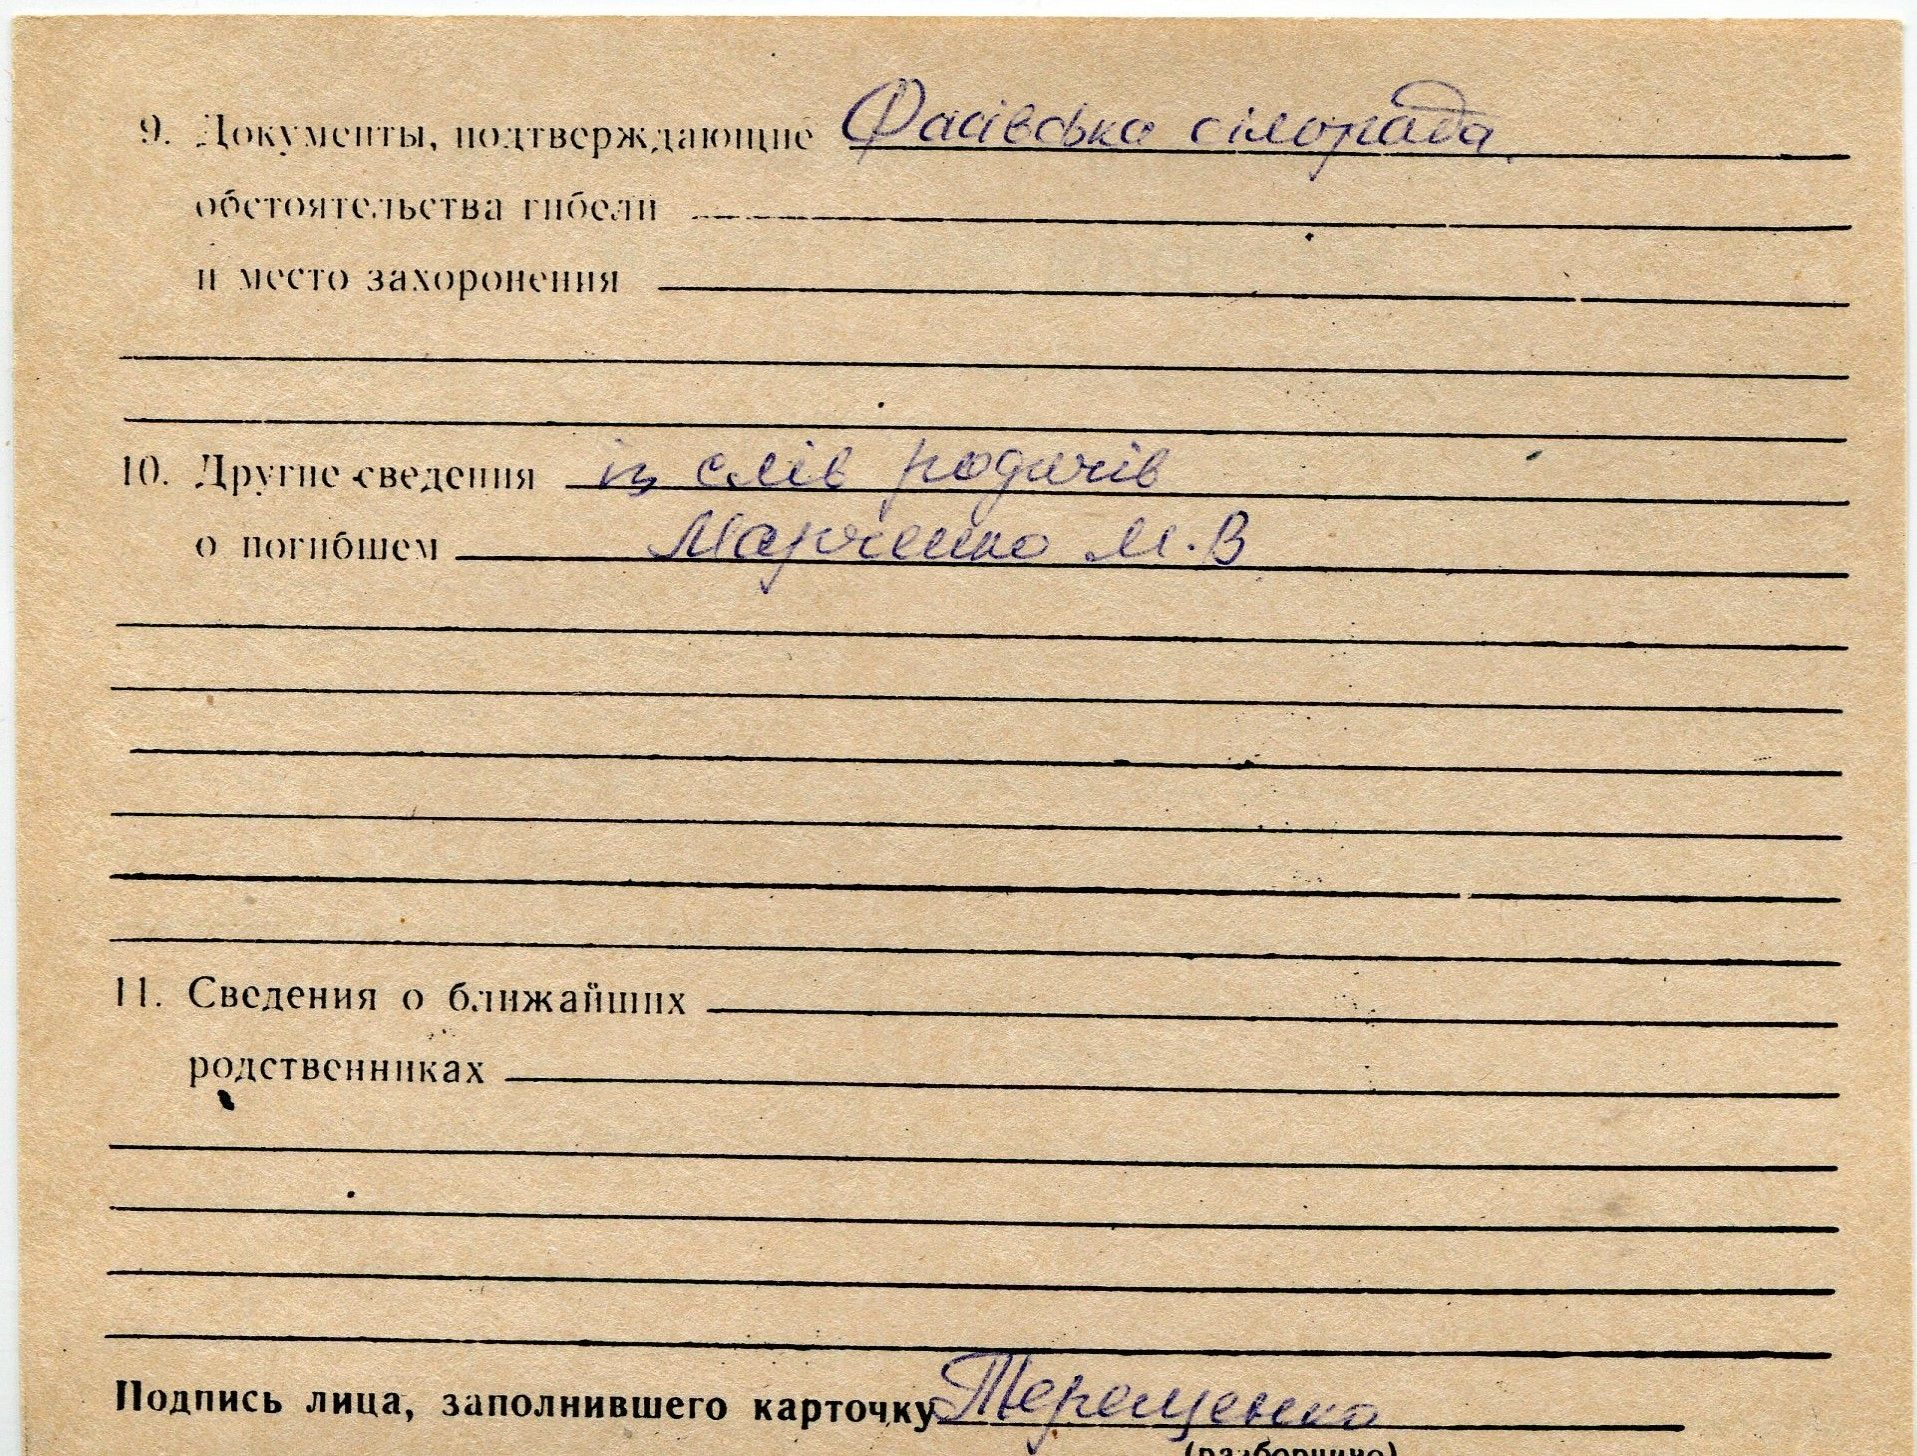 9. Документы, подтверждающие Фасівська сілорада.
обстоятельства гибели
и место захоронения
10. Другие сведения із слів родичів
о погибшем Марченко М.В
11. Сведения о ближайших
родственниках
Подпись лица, заполнившего карточку Терещенко
(разборчиво)